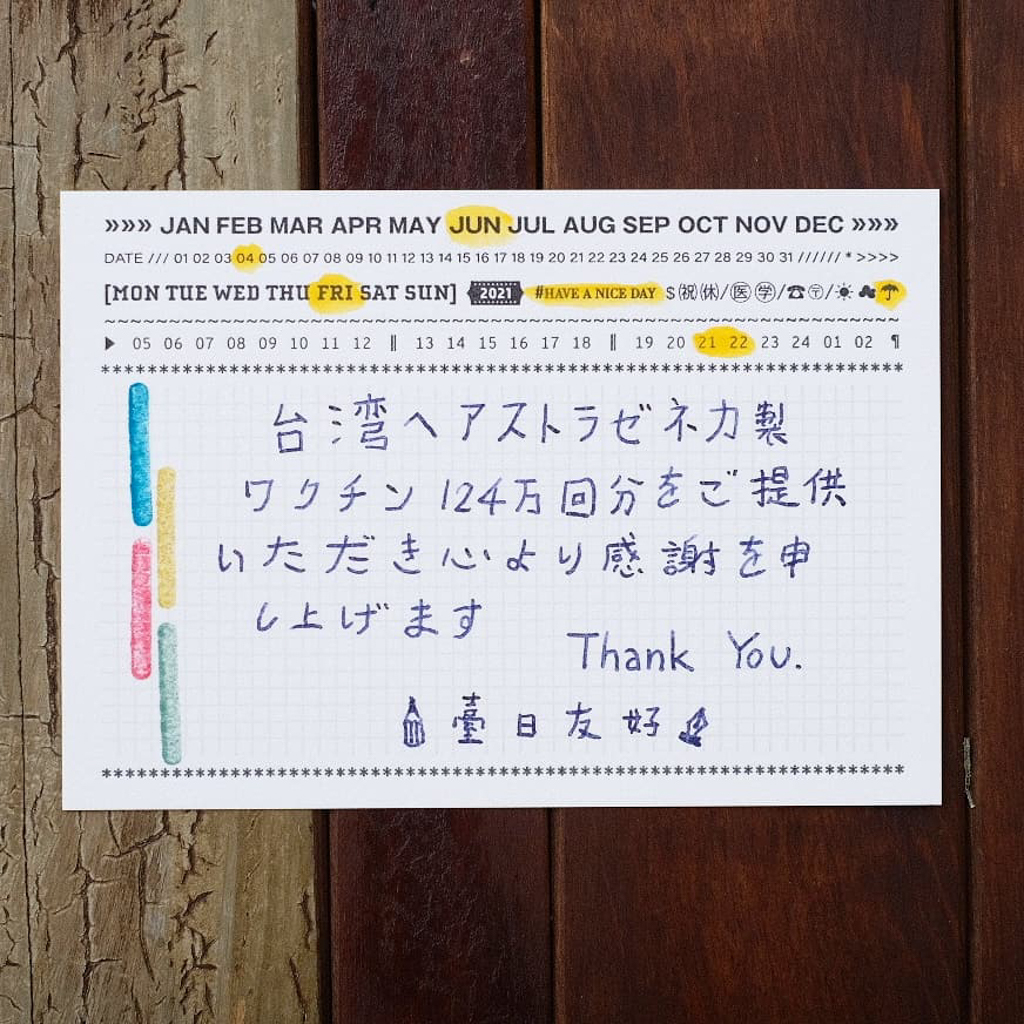 »»» JAN FEB MAR APR MAY JUN JUL AUG SEP OCT NOV DEC »»»
DATE /// 01 02 03 04 05 06 07 08 09 10 11 12 13 14 15 16 17 18 19 20 21 22 23 24 25 26 27 28 29 30 31 ////// * >>>>
[MON TUE WED THU FRI SAT SUN] 2021 #HAVE A NICE DAY $ ㊗ ㊡/医 学/☎〒/☀ ☁ ☂
~~~~~~~~~~~~~~~~~~~~~~~~~~~~~~~~~~~~~~~~~~~~~~~~~~~~~~~~~~~~~~~~~~~~~~~~~~~~~~~~
▶ 05 06 07 08 09 10 11 12 ‖ 13 14 15 16 17 18 ‖ 19 20 21 22 23 24 01 02 ¶
********************************************************************************
台湾へアストラゼネカ製
ワクチン124万回分をご提供
いただき心より感謝を申
し上げます
Thank You.
臺日友好
********************************************************************************